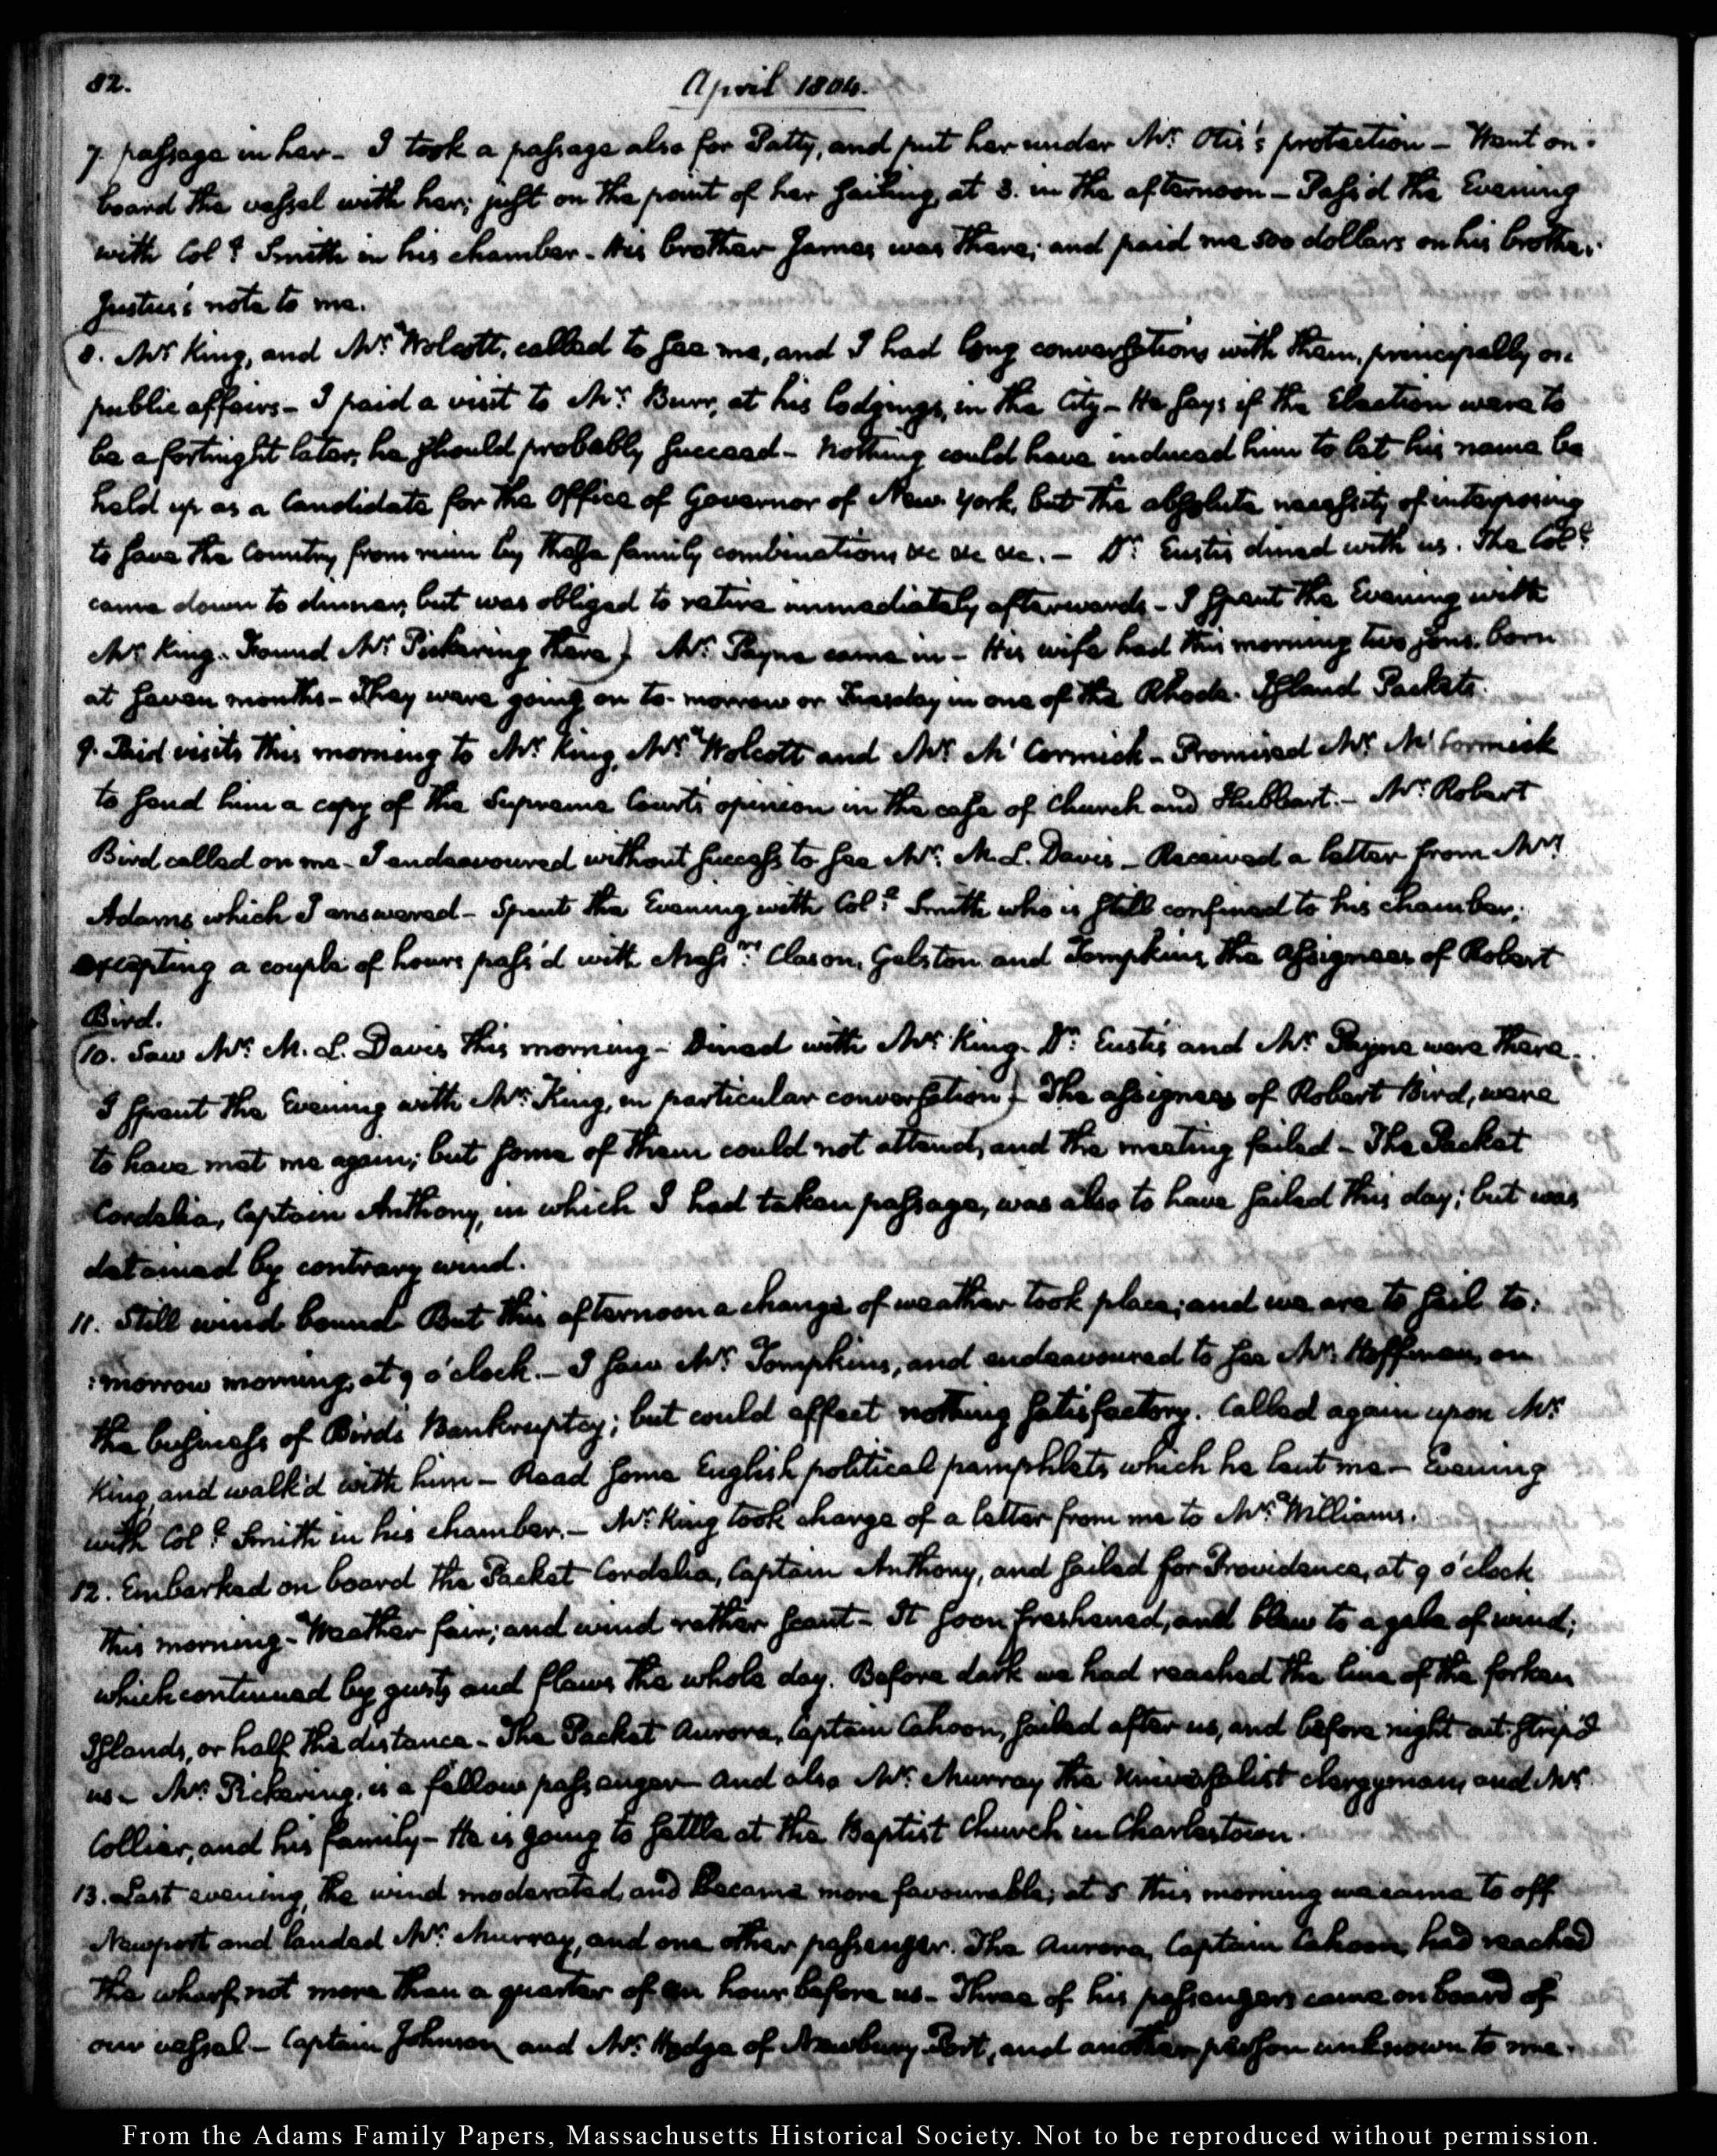 82.
April 1804.
7. passage in her - I took a passage also for Patty, and put her under Mr. Otis's protection - Went on-
board the vessel with her; just on the point of her sailing, at 3. in the afternoon - Pass'd the Evening
with Coll. Smith in his chamber. His brother James was there; and paid me 500 dollars on his brother
Justus's note to me.
(8. Mr. King, and Mr. Wolcott, called to see me, and I had long conversations with them, principally on
public affairs - I paid a visit to Mr. Burr, at his lodgings, in the City - He says if the Election were to
be a fortnight later, he should probably succeed - Nothing could have induced him to let his name be
held up as a Candidate for the Office of Governor of New York, but the absolute necessity of interposing
to save the Country from ruin by these family combinations &c &c &c. - Dr. Eustis dined with us. The Coll.
came down to dinner, but was obliged to retire immediately afterwards - I spent the Evening with
Mr. King. Found Mr. Pickering there) Mr. Payne came in - His wife had this morning two sons, born
at seven months - They were going on to-morrow or Tuesday in one of the Rhode-Island Packets.
9. Paid visits this morning to Mr. King, Mr. Wolcott and Mr. Mc Cormick - Promised Mr. Mc Cormick
to send him a copy of the Supreme Court's opinion in the case of Church and Hubbart. - Mr. Robert
Bird called on me - I endeavoured without success to see Mr. M. L. Davis - Received a letter from Mrs.
Adams which I answered - Spent the Evening with Coll. Smith who is still confined to his chamber;
excepting a couple of hours pass'd with Messrs. Clason, Gelston and Tompkins, the assignees of Robert
Bird.
(10. Saw Mr. M. L. Davis this morning - Dined with Mr. King. Dr. Eustis and Mr. Payne were there.
I spent the Evening with Mr. King, in particular conversation) The assignees of Robert Bird, were
to have met me again; but some of them could not attend, and the meeting failed - The Packet
Cordelia, Captain Anthony, in which I had taken passage, was also to have sailed this day; but was
detained by contrary wind.
11. Still wind bound. But this afternoon a change of weather took place; and we are to sail to:
:morrow morning, at 9 o'clock. - I saw Mr. Tompkins, and endeavoured to see Mr. Hoffman, on
the business of Bird's Bankruptcy; but could effect nothing satisfactory. Called again upon Mr.
King, and walk'd with him - Read some English political pamphlets which he lent me - Evening
with Coll. Smith in his chamber. - Mr. King took charge of a letter from me to Mr. Williams.
12. Embarked on board the Packet Cordelia, Captain Anthony, and sailed for Providence, at 9 o'clock
this morning - Weather fair; and wind rather scant - It soon freshened, and blew to a gale of wind;
which continued by gusts and flaws the whole day. Before dark we had reached the line of the forken
Islands, or half the distance - The Packet Aurora, Captain Cahoon, sailed after us, and before night out-strip'd
us - Mr. Pickering, is a fellow passenger - And also Mr. Murray the Universalist clergyman, and Mr.
Collier, and his family - He is going to settle at the Baptist Church in Charlestown.
13. Last evening, the wind moderated, and became more favourable; at 5 this morning we came to off
Newport and landed Mr. Murray, and one other passenger. The Aurora, Captain Cahoon, had reached
the wharf, not more than a quarter of an hour before us - Three of his passengers came on board of
our vessel - Captain Johnson and Mr. Hodge of Newbury-Port, and another person unknown to me.
From the Adams Family Papers, Massachusetts Historical Society. Not to be reproduced without permission.